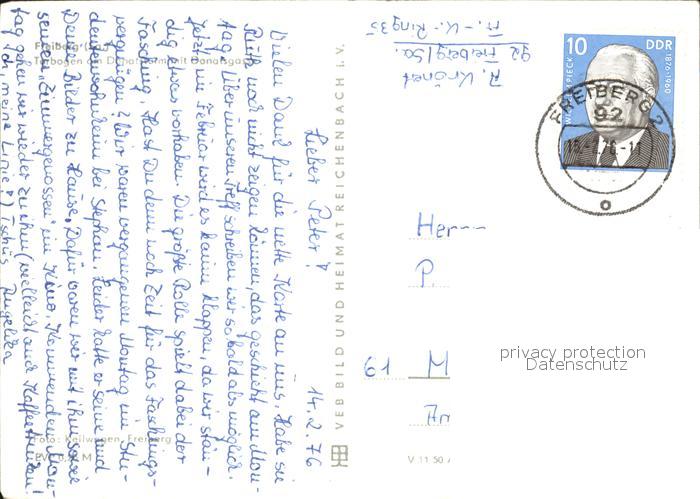 14.2.76
Lieber Peter!
Vielen Dank für die nette Karte an uns. Habe sie
Ruth noch nicht zeigen können, das geschieht am Mon-
tag. Über unseren Treff schreiben wir sobald als möglich.
Jetzt im Februar wird es kaum klappen, da wir stän-
dig etwas vorhaben. Die größte Rolle spielt dabei der
Fasching. Hast Du denn noch Zeit für das Faschings-
vergnügen? Wir waren vergangenen Montag im Stu-
dentenwohnheim bei Stephan. Leider hatte er seine und
Deine Bilder zu Hause. Dafür waren wir mit ihm sowie
seinen "Zimmergenossen" im Kino. Kommenden Mon-
tag gehen wir wieder zu ihm (vielleicht auch Kaffeetrinken!
meine Linie?) Tschüs Angelika
Freiberg (Sa.)
Torbogen am Donatsturm mit Donatsgasse
Foto: Keilwagen, Freiberg
EVP 0,20 M
VEB BILD UND HEIMAT REICHENBACH i. V.
V 11 50
A. Krönert
92 Freiberg/Sa.
Fr.-U.-Ring 35
10
DDR
WILHELM PIECK
1876-1960
FREIBERG 2
92
Herr
P.
61 M
privacy protection
Datenschutz